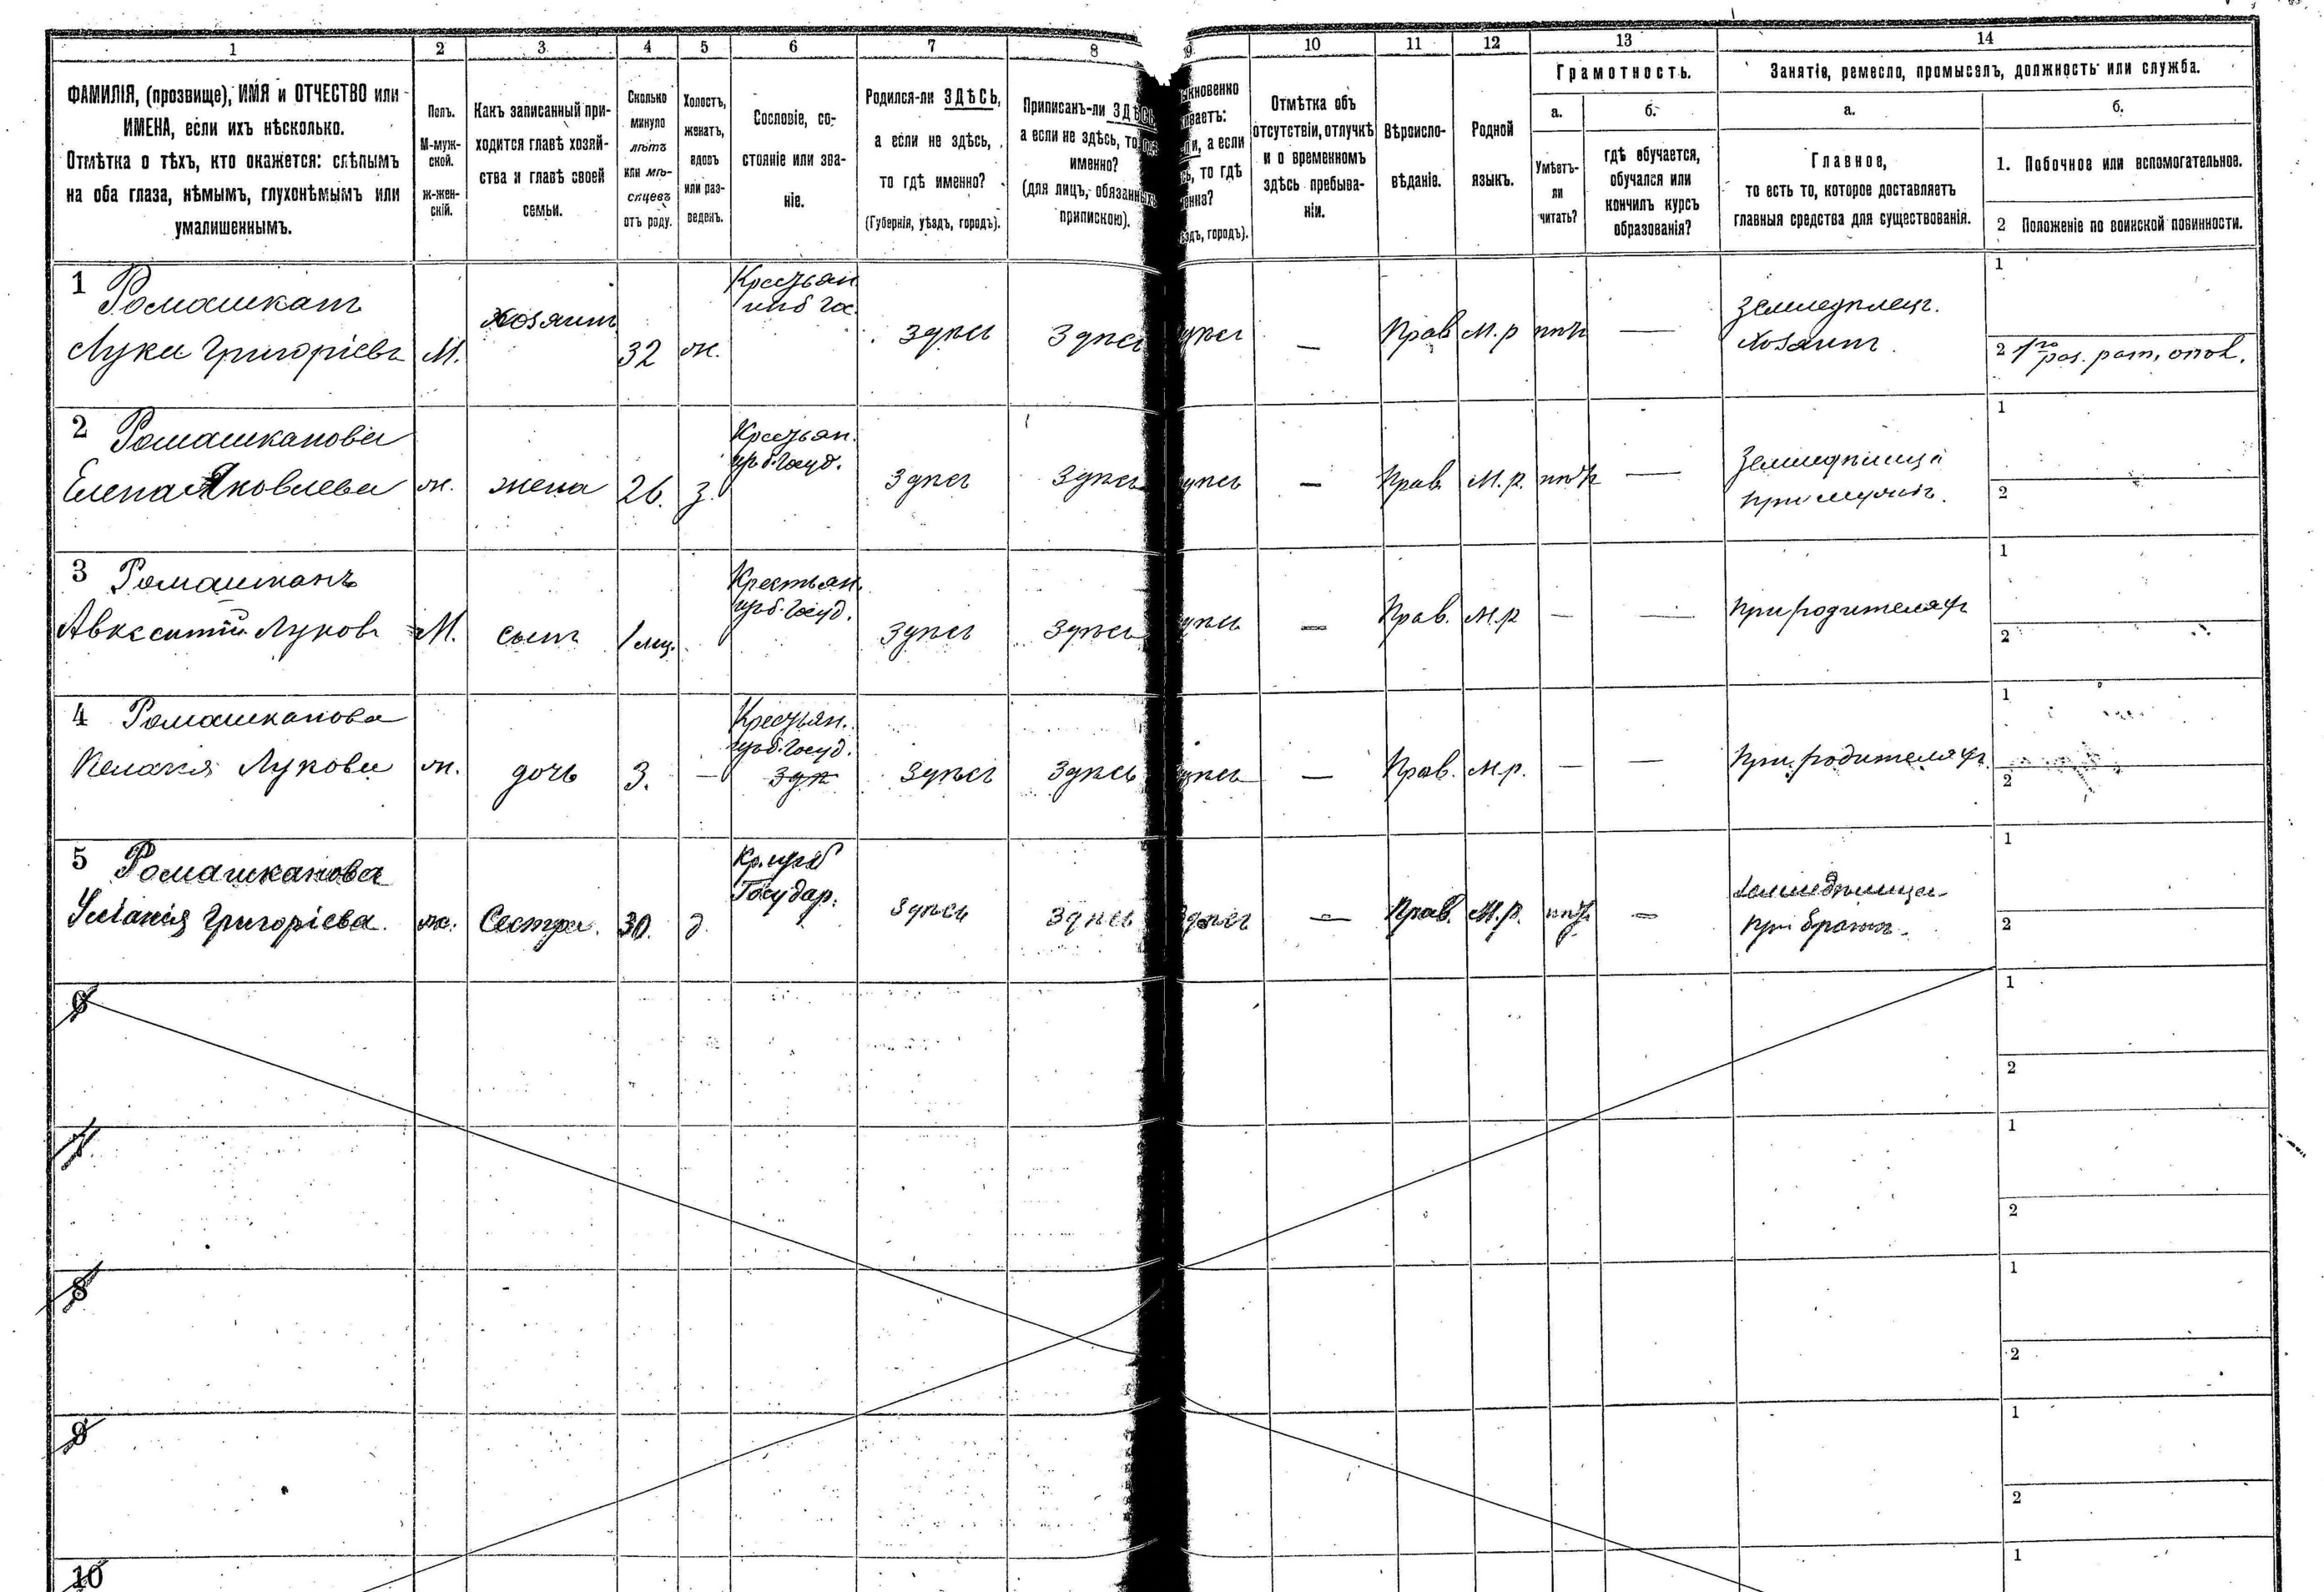 1 2 3 4 5 6 7 8 9 10 11 12 13 14
ФАМИЛІЯ, (прозвище), ИМЯ и ОТЧЕСТВО или
ИМЕНА, если ихъ нѣсколько.
Отмѣтка о тѣхъ, кто окажется: слѣпымъ
на оба глаза, нѣмымъ, глухонѣмымъ или
умалишеннымъ.
Полъ.
М-муж-
ской.
ж-жен-
скій.
Какъ записанный при-
ходится главѣ хозяй-
ства и главѣ своей
семьи.
Сколько
минуло
лѣтъ
или мѣ-
сяцевъ
отъ роду.
Холостъ,
женатъ,
вдовъ
или раз-
веденъ.
Сословіе, со-
стояніе или зва-
ніе.
Родился-ли ЗДѢСЬ,
а если не здѣсь,
то гдѣ именно?
(Губернія, уѣздъ, городъ).
Приписанъ-ли ЗДѢСЬ,
а если не здѣсь, то гдѣ
именно?
(для лицъ, обязанныхъ
припискою).
ыкновенно
ваетъ:
а если
то гдѣ
городъ).
Отмѣтка объ
отсутствіи, отлучкѣ
и о временномъ
здѣсь пребыва-
ніи.
Вѣроиспо-
вѣданіе.
Родной
языкъ.
Грамотность.
а.
Умѣетъ-
ли
читать?
б.
гдѣ обучается,
обучался или
кончилъ курсъ
образованія?
Занятіе, ремесло, промыселъ, должность или служба.
а.
Главное,
то есть то, которое доставляетъ
главныя средства для существованія.
б.
1. Побочное или вспомогательное.
2 Положеніе по воинской повинности.
1 Ромашканъ
Лука Григорьевъ
М.
хозяинъ
32
ж.
Крестьян
здѣсь
здѣсь
—
Прав
М.р
нѣтъ
—
Земледѣлецъ.
Хозяинъ
1
2
2 Ромашканова
Елена Яковлева
ж.
жена
26.
з.
Крестьян.
Госуд.
здѣсь
здѣсь
—
Прав
М.р.
нѣтъ
—
при мужѣ.
1
2
3 Ромашканъ
Авксентій Луковъ
М.
сынъ
1 мец.
Крестьян.
Госуд.
здѣсь
здѣсь
—
Прав.
М.р
—
—
при родителяхъ
1
2
4 Ромашканова
Лукова
ж.
дочь
3.
—
Крестьян.
Госуд.
здѣсь
здѣсь
—
Прав.
М.р.
—
—
при родителяхъ
1
2
5 Ромашканова
Григоріева.
ж.
Сестра.
30.
д.
Государ.
здѣсь
здѣсь
здѣсь
—
Прав.
М.р.
нѣтъ
—
при братѣ.
1
2
6
1
2
7
1
2
8
1
2
9
1
2
10
1